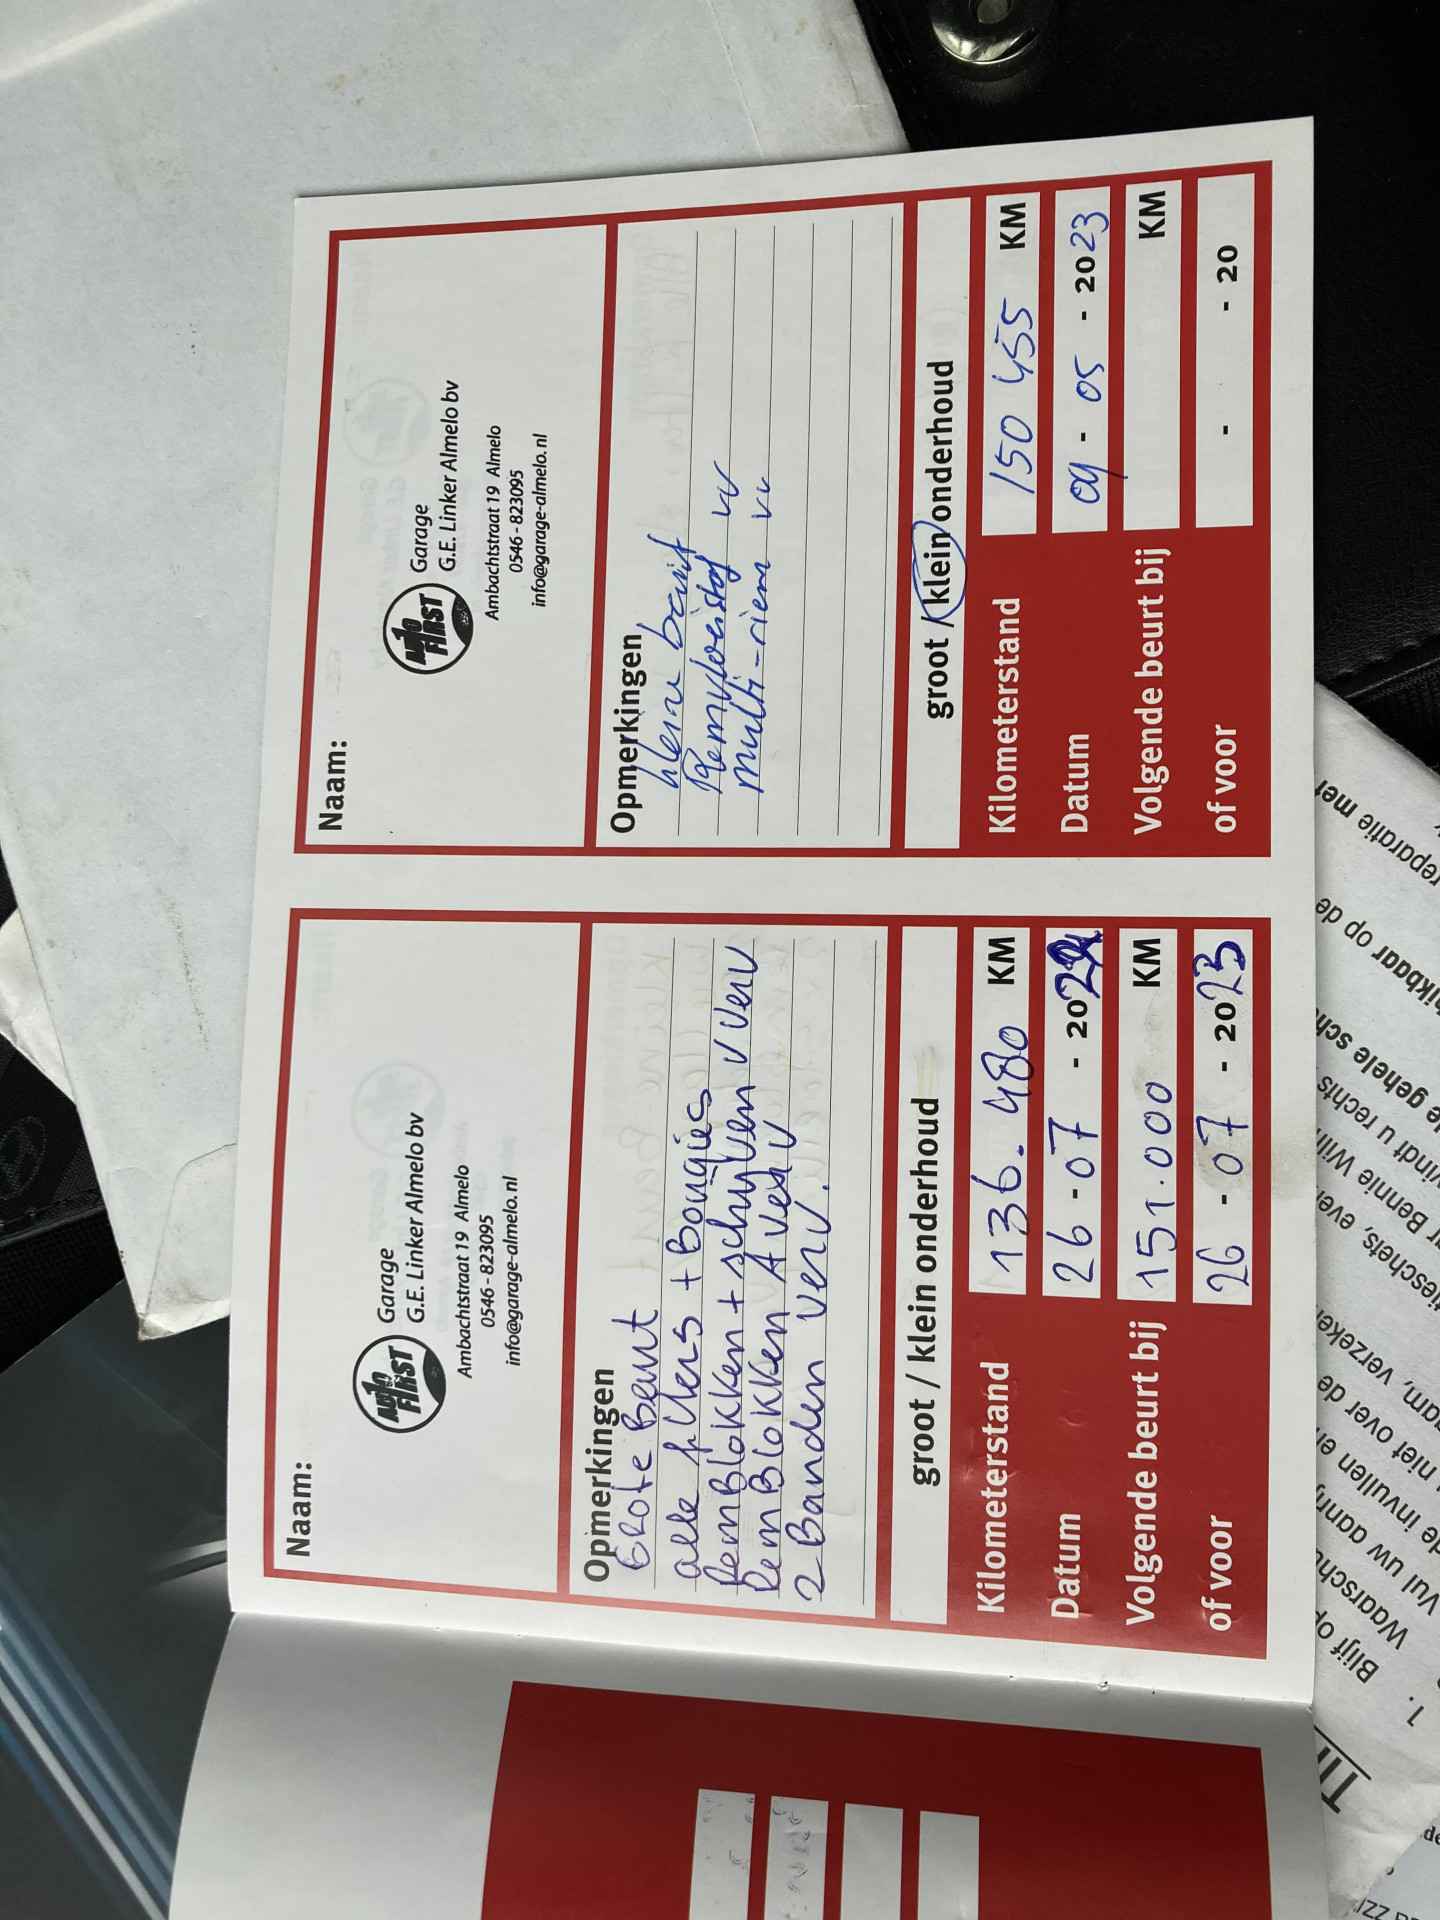 Naam:
AUTO FIRST
Garage
G.E. Linker Almelo bv
Ambachtstraat 19 Almelo
0546 - 823095
info@garage-almelo.nl
Opmerkingen
Grote Beurt
alle filters + Bougies
RemBlokken + schijven V verv
RemBlokken A verv
2 Banden verv.
groot / klein onderhoud
Kilometerstand 136.480 KM
Datum 26 - 07 - 2022
Volgende beurt bij 151.000 KM
of voor 26 - 07 - 2023
Naam:
AUTO FIRST
Garage
G.E. Linker Almelo bv
Ambachtstraat 19 Almelo
0546 - 823095
info@garage-almelo.nl
Opmerkingen
kleine beurt
Remvloeistof vv
multi-riem vv
groot / klein onderhoud
Kilometerstand 150 455 KM
Datum 09 - 05 - 2023
Volgende beurt bij KM
of voor - - 20
reparatie met
op de
hikbaar
gehele
vindt u rechts
Bennie
verzeker
niet over de
invullen en
Vul uw
1. Blijf op